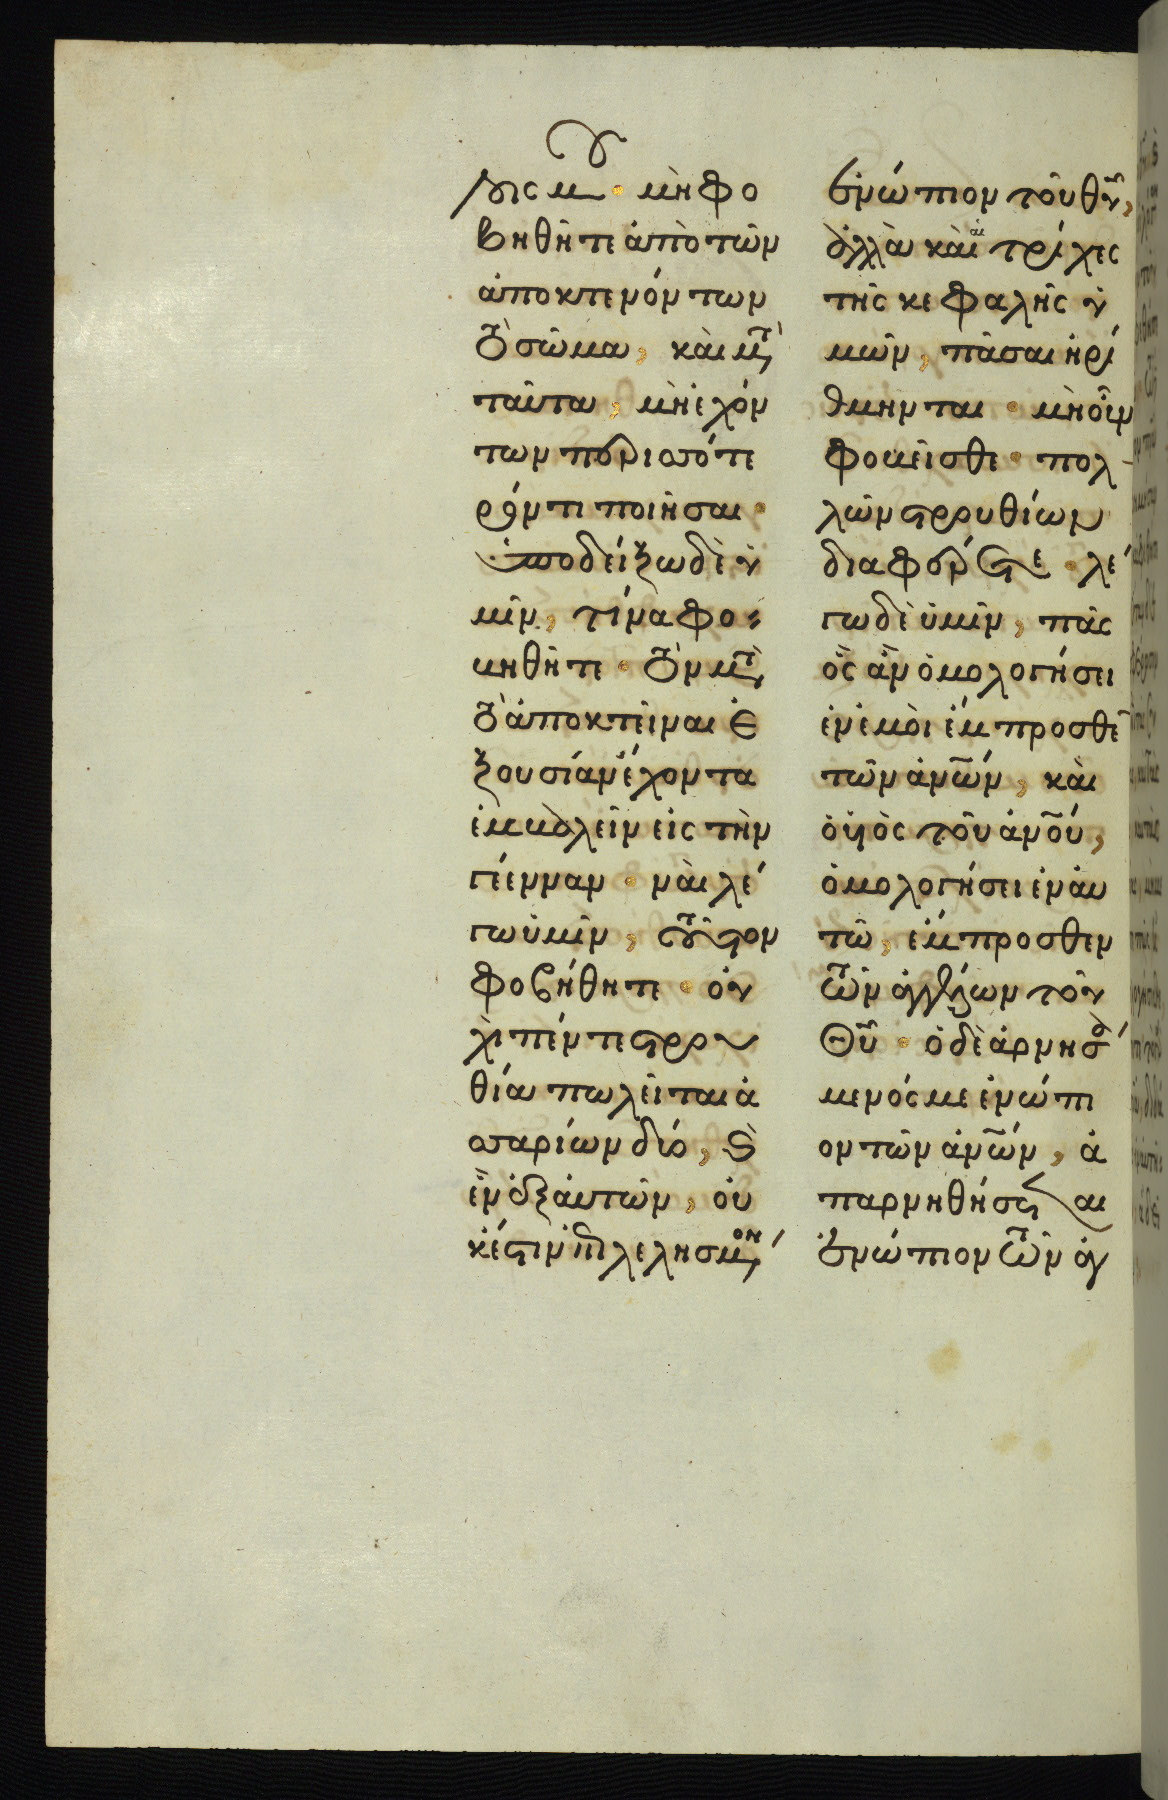 τοις μου · μὴ φο
βηθῆτε ἀπὸ τῶν
ἀποκτενόντων
τὸ σῶμα, καὶ μετὰ
ταῦτα, μὴ ἐχόν
των περισσότε
ρόν τι ποιῆσαι ·
ὑποδείξω δὲ ὑ
μῖν, τίνα φο
βηθῆτε · τὸν μετὰ
τὸ ἀποκτεῖναι ἐ
ξουσίαν ἔχοντα
ἐμβαλεῖν εἰς τὴν
γέενναν · ναὶ λέ
γω ὑμῖν, τοῦτον
φοβήθητε · οὐ
χὶ πέντε στρου
θία πωλεῖται ἀ
σσαρίων δύο, καὶ
ἓν ἐξ αὐτῶν, οὐ
κ ἔστιν ἐπιλελησμένον
ἐνώπιον τοῦ θυ,
ἀλλὰ καὶ αἱ τρίχες
τῆς κεφαλῆς ὑ
μῶν, πᾶσαι ἠρί
θμηνται · μὴ οὖν
φοβεῖσθε · πολ
λῶν στρουθίων
διαφέρετε · λέ
γω δὲ ὑμῖν, πᾶς
ὃς ἂν ὁμολογήσει
ἐν ἐμοὶ ἔμπροσθε
τῶν ἀνων, καὶ
ὁ υἱὸς τοῦ ἀνου,
ὁμολογήσει ἐν αὐ
τῷ, ἔμπροσθεν
τῶν ἀγγέλων τοῦ
θυ · ὁ δὲ ἀρνησά
μενός με ἐνώπι
ον τῶν ἀνων, ἀ
παρνηθήσεται
ἐνώπιον τῶν ἀγ